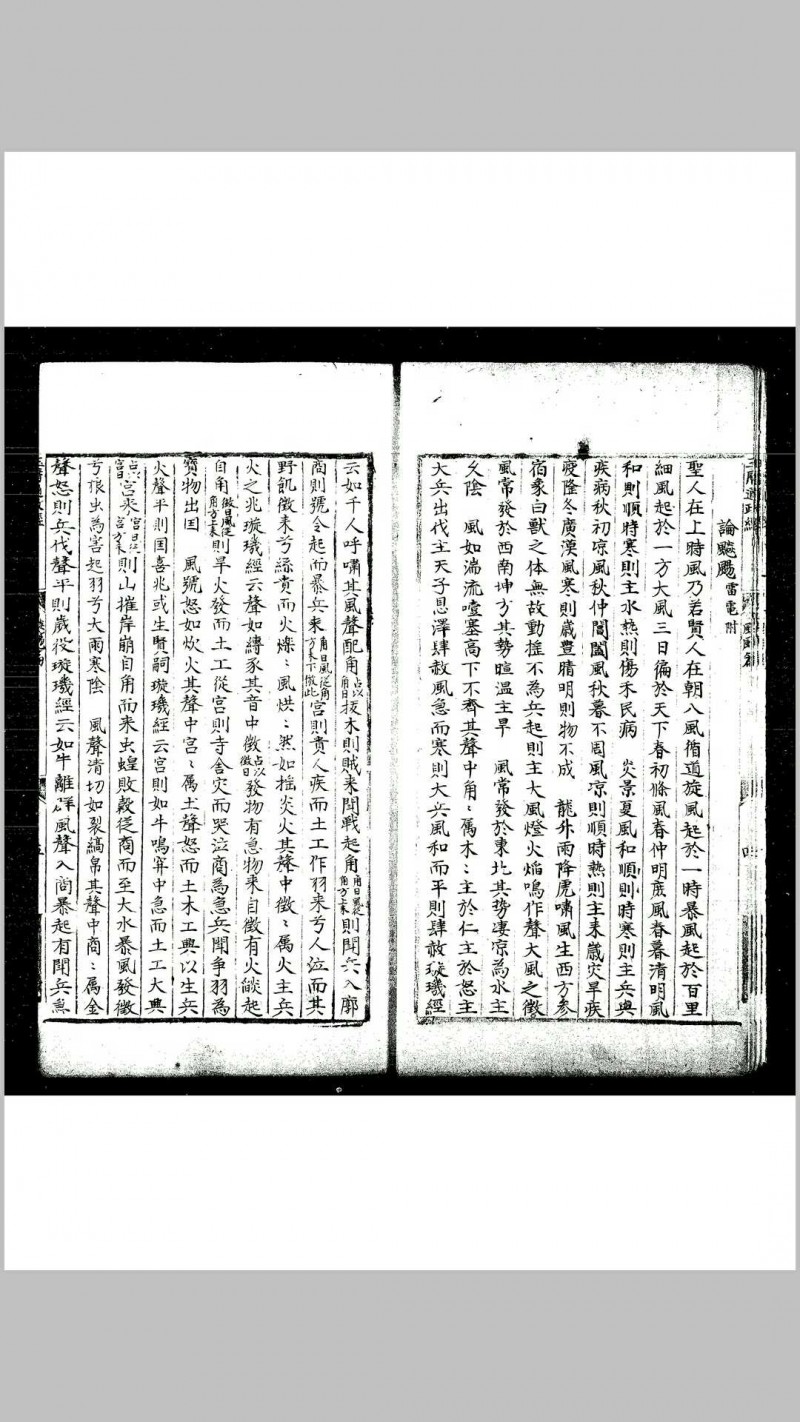 論飈颺雷電附
聖人在上時風乃若賢人在朝八風循道旋風起於一時暴風起於百里
細風起於一方大風三日徧於天下春初條風春仲明庶風春暮清明風
和則順時寒則主水熱則傷禾民病　炎景夏風和順則時寒則主兵與
疾病秋初凉風秋仲閶闔風秋暮不周風凉則順時熱則主来歲灾旱疾
疫隆冬廣漠風寒則歲豐晴明則物不成　龍外雨降虎嘯風生西方参
宿象白獸之体無故動揺不為兵起則主大風燈火焰鳴作聲大風之徵
風常發於西南坤方其勢暄溫主旱　風常發於東北其势凄凉為水主
久陰　風如湍流喧塞高下不齊其聲中角〻属木〻主於仁主於怒主
大兵出伐主天子恩澤肆赦風急而寒則大兵風和而平則肆赦璇璣經
云如千人呼嘯其風聲配角占以角日拔木則賊来聞戰起角角日風從角方上来則聞兵入廓
商則號令起而暴兵来角日風從角方来下倣此宮則貴人疾而土工作羽来兮人泣而其
野飢徵来兮絲貴而火爍〻風烘〻然如揺炎火其聲中徵〻属火主兵
火之兆璇璣經云聲如縛豕其音中徵占以徵日發物有急物来自徵有火燄起
自角徵日風從角方上来則旱火發而土工從宮則寺舍灾而哭泣商為急兵聞争羽為
寶物出国　風號怒如炊火其聲中宮〻属土聲怒而土木工興以生兵
火聲平則国喜兆或生賢嗣璇璣經云宮則如牛鳴穽中急而土工大興
占以宮日宮来宮日從宮方来則山摧岸崩自角而来虫蝗敗穀從商而至大水暴風發徵
兮根虫為害起羽兮大雨寒陰　風聲清切如裂縞帛其聲中商〻属金
聲怒則兵伐聲平則歲役璇璣經云如牛離群風聲入商暴起有聞兵急